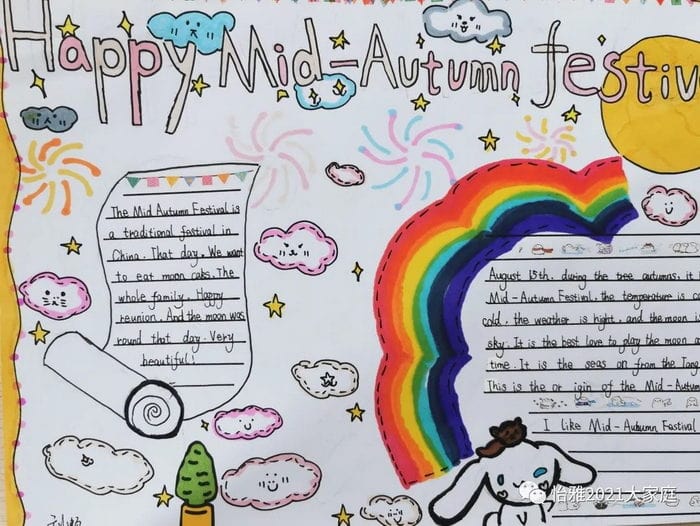 Happy Mid-Autumn festiv
The Mid Autumn Festival is
a traditional fastival in
China. That day. We want
to eat moon caks. The
whole family. Happy
reunion. And the moon was
round that day. Very
beautiful!
August 15th. during the tree autumns, it
Mid-Autumn Festival. the temperature is
cold, the weather is hight, and the moon i
sky. It is the best love to play the moon a
time. It is the seas on from the Tang
This is the or igin of the Mid-Autum
I like Mid-Autumn Festival
怡雅2021大家庭